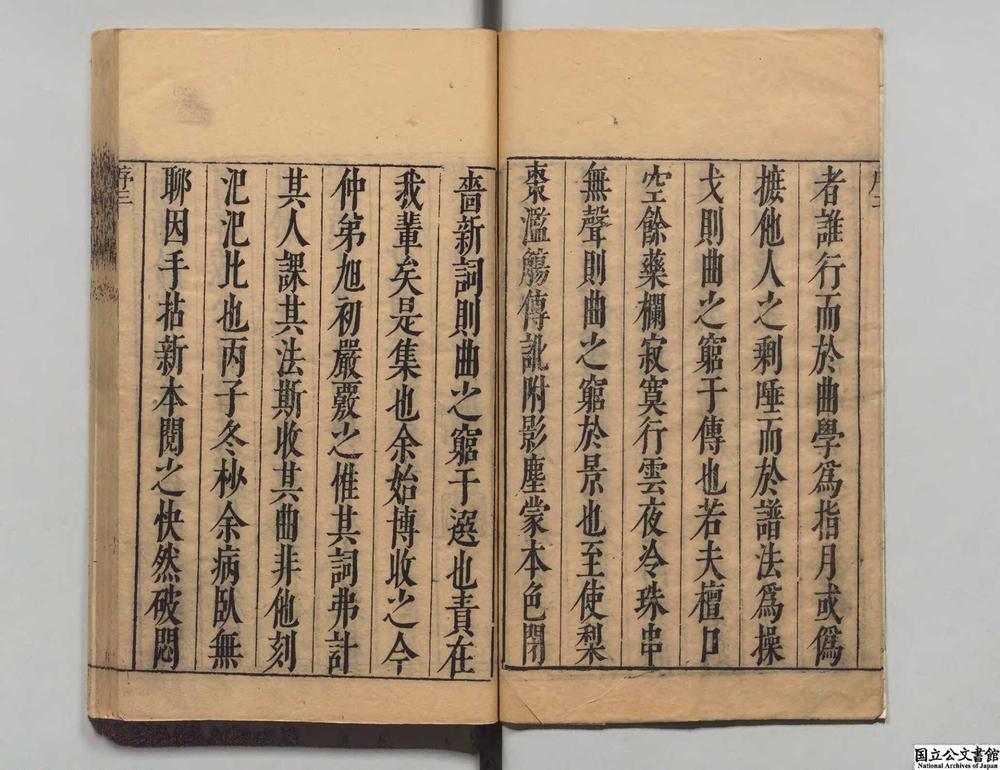 序二
者誰行而於曲學爲指月或僞
摭他人之剩唾而於譜法爲操
戈則曲之窮于傳也若夫檀口
空餘藥欄寂寞行雲夜冷珠串
無聲則曲之窮於景也至使梨
棗濫觴傳訛附影塵蒙本色閉
嗇新詞則曲之窮于選也責在
我輩矣是集也余始博收之今
仲弟旭初嚴覈之惟其詞弗計
其人課其法斯收其曲非他刻
汜汜比也丙子冬杪余病臥無
聊因手拈新本閱之快然破悶
序三
国立公文書館
National Archives of Japan